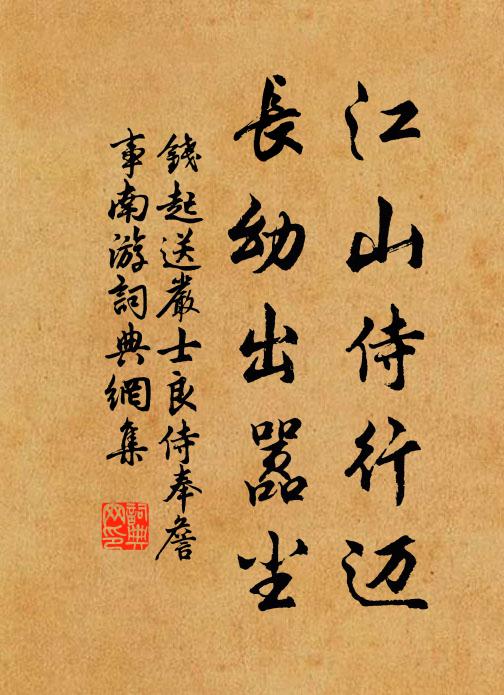 江山侍行迈
長幼出嚣尘
錢起送嚴士良侍奉詹
事南游詞典網集
詞典网印